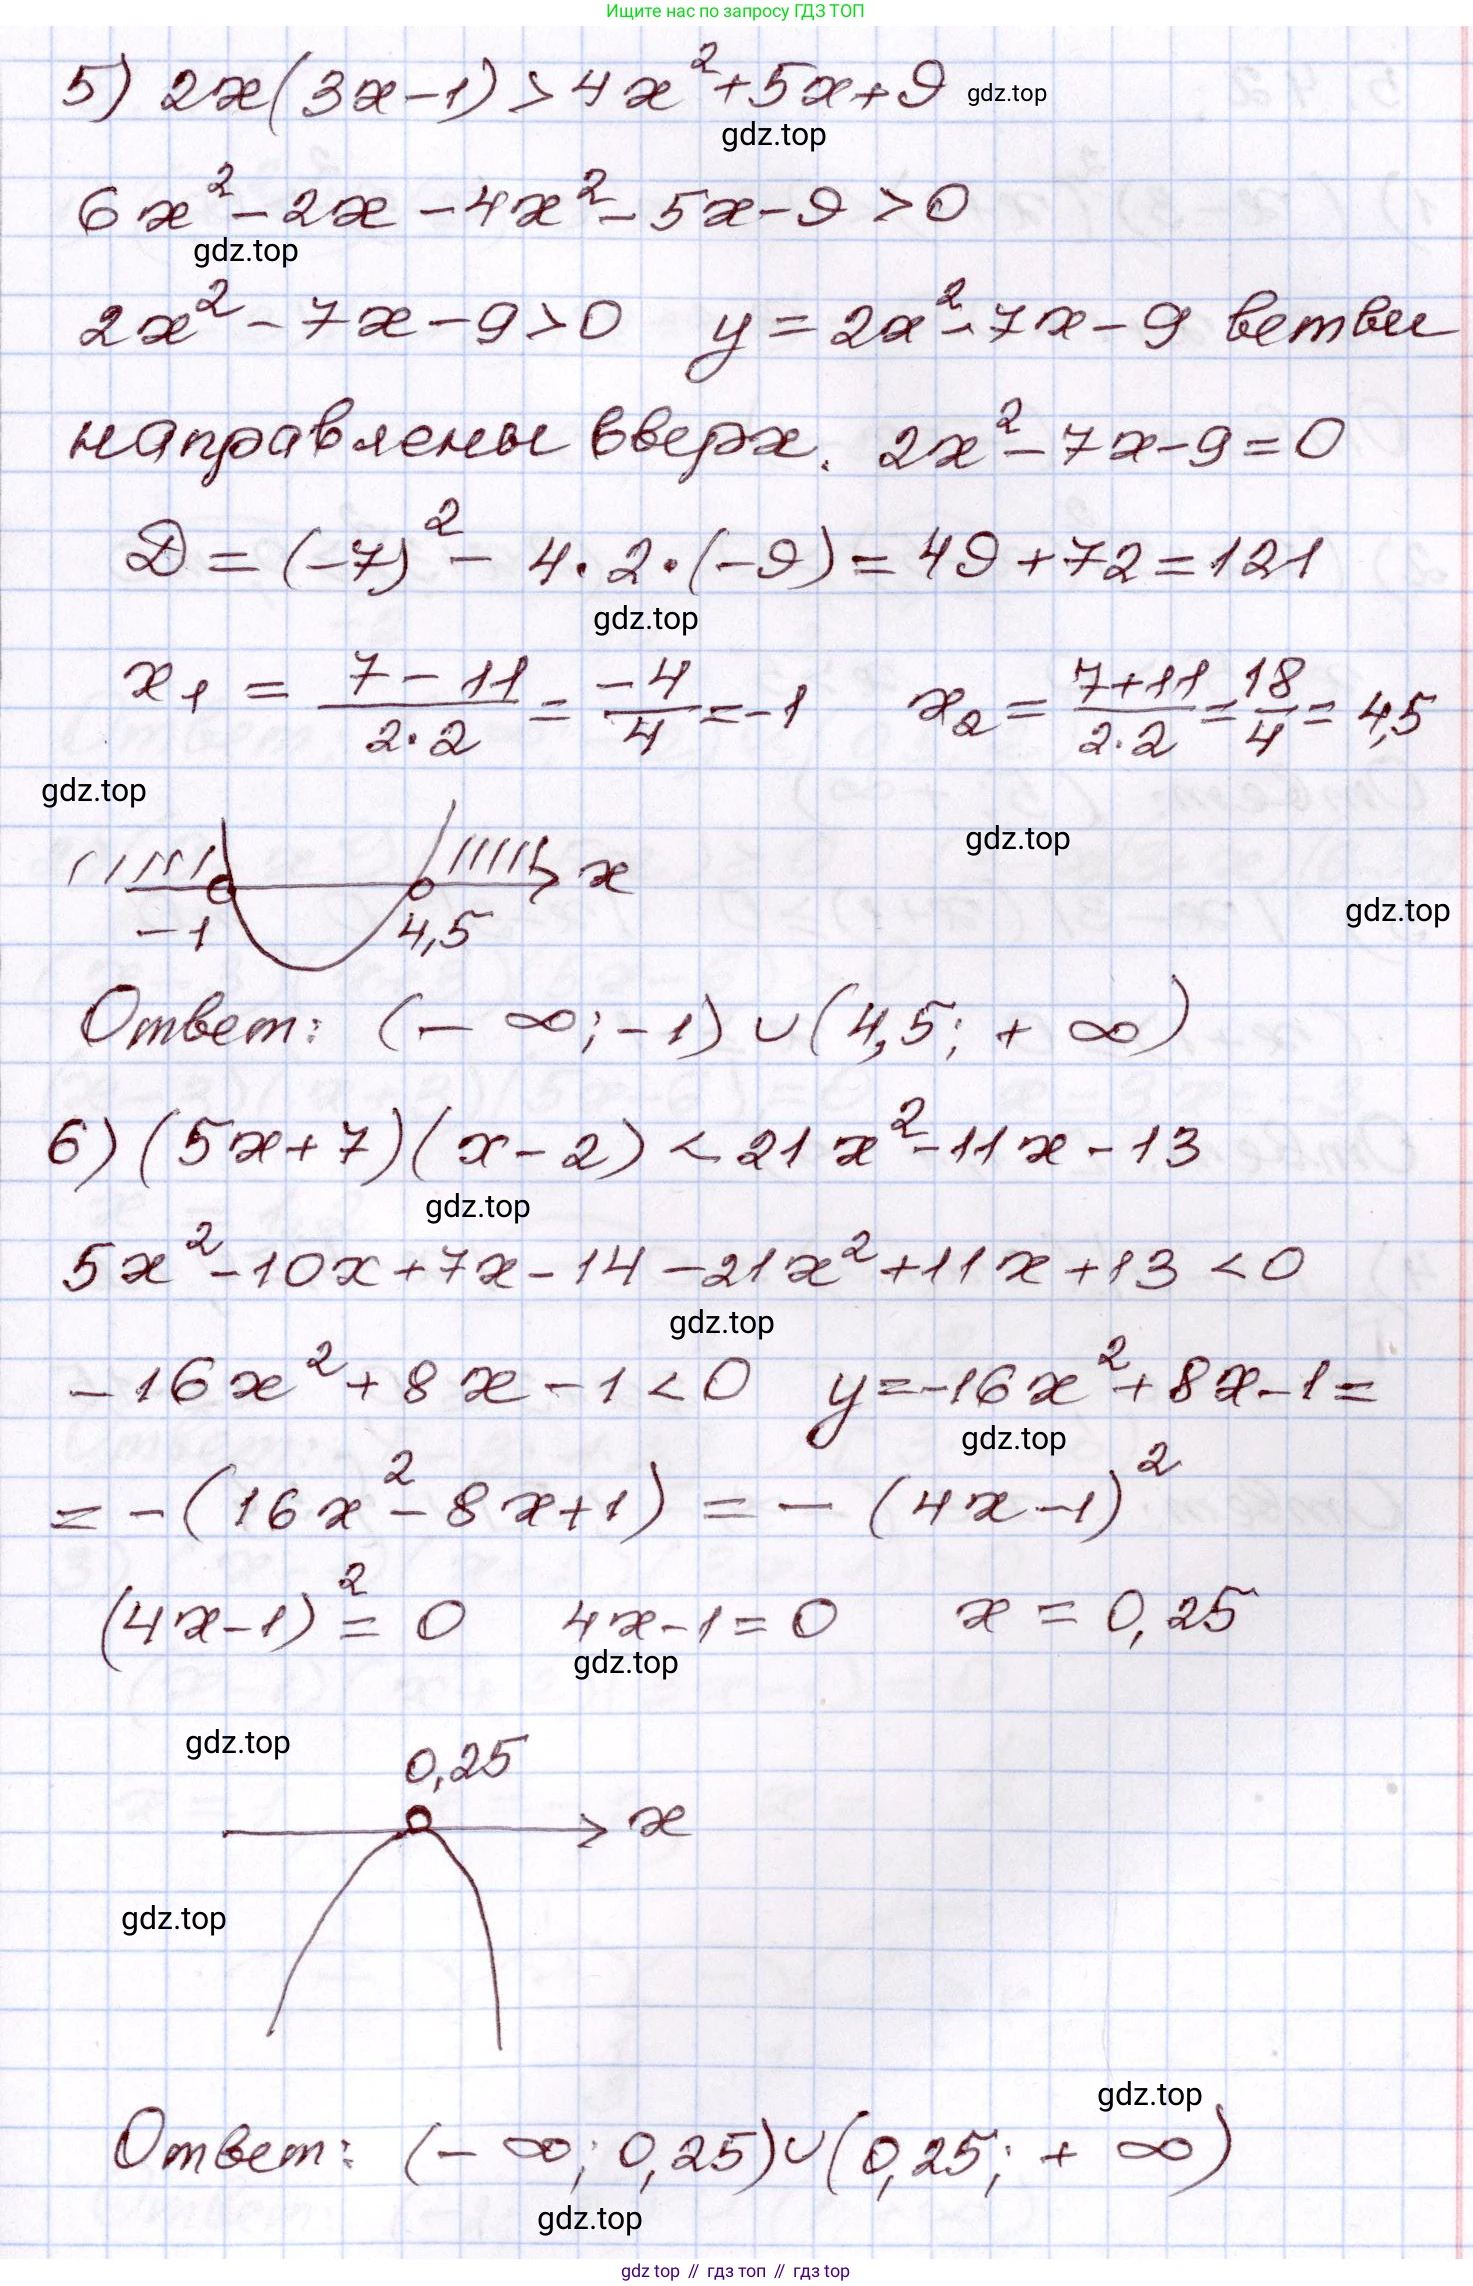 Ищите нас по запросу ГДЗ ТОП
5) 2x(3x-1)>4x²+5x+9 gdz.top
gdz.top
6x²-2x-4x²-5x-9>0
gdz.top
2x²-7x-9>0 y=2x²-7x-9 ветви
направлены вверх. 2x²-7x-9=0
D=(-7)²-4·2·(-9)=49+72=121
gdz.top
x₁=(7-11)/(2·2)=-4/4=-1 x₂=(7+11)/(2·2)=18/4=4,5
gdz.top
gdz.top
x
gdz.top
-1 4,5
Ответ: (-∞;-1)∪(4,5;+∞)
6) (5x+7)(x-2)<21x²-11x-13
gdz.top
5x²-10x+7x-14-21x²+11x+13<0
gdz.top
-16x²+8x-1<0 y=-16x²+8x-1=
gdz.top
=-(16x²-8x+1)=-(4x-1)²
(4x-1)²=0 4x-1=0 x=0,25
gdz.top
gdz.top
0,25
x
gdz.top
gdz.top
Ответ: (-∞;0,25)∪(0,25;+∞)
gdz.top
gdz top // гдз топ // gdz top